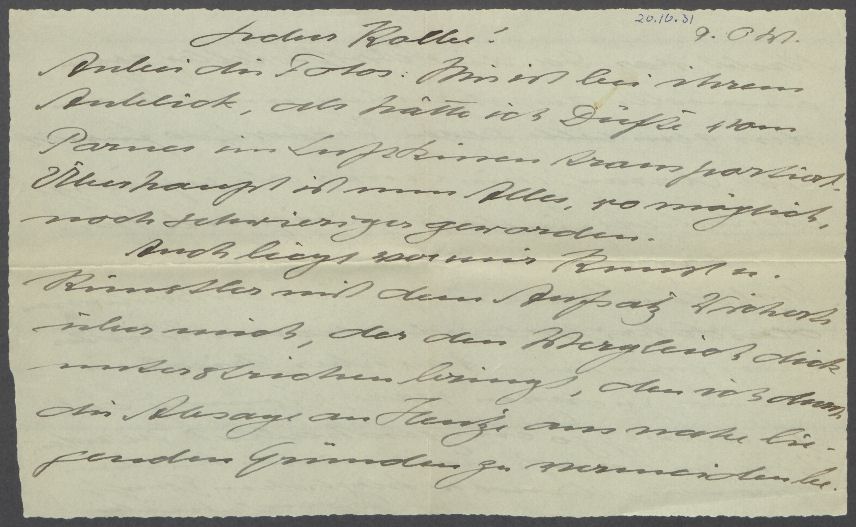 20.10.31
9. Okt.
Lieber Kolbe!
Anbei die Fotos. Mir ist bei ihrem
Anblick, als hätte ich Düfte vom
Parnes im Luftkissen transportiert.
Überhaupt ist nun Alles, wo möglich,
noch schwieriger geworden.
Auch liegt vor mir Kunst u.
Künstler mit dem Aufsatz Wicherts
über mich, der den Vergleich dick
unterstrichen bringt, den ich durch
die Absage an Hentze aus nahe lie-
genden Gründen zu vermeiden be-